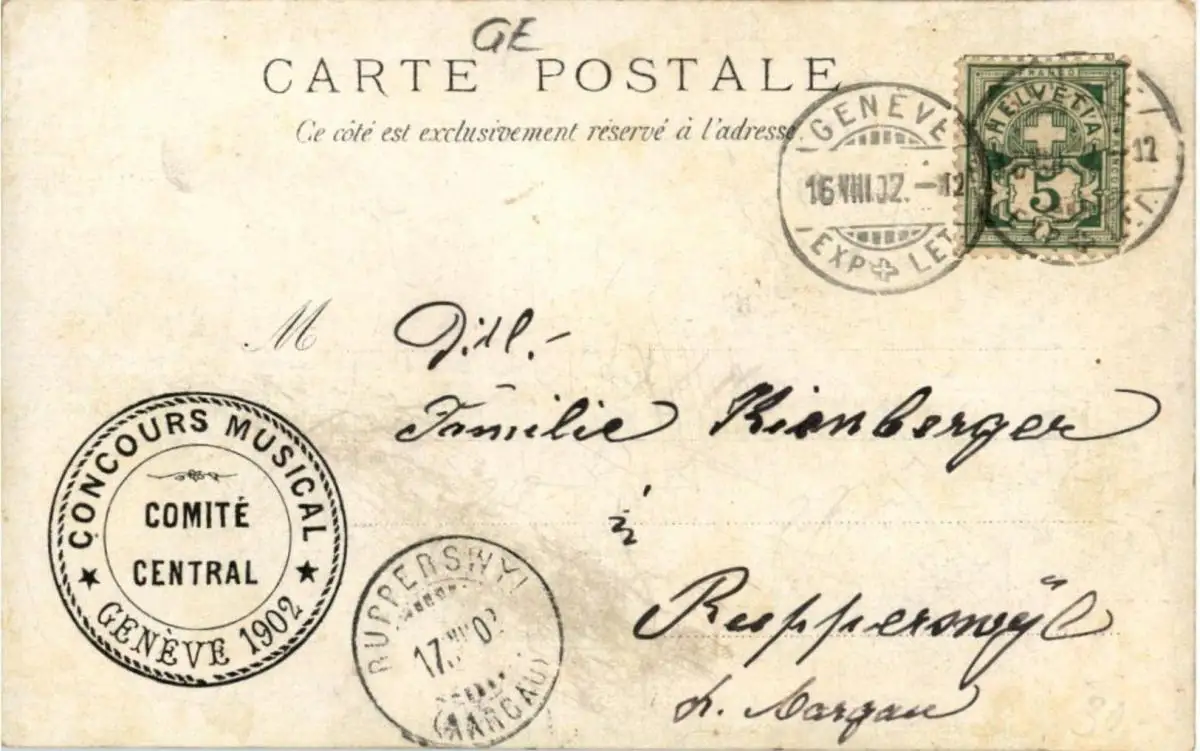 GE
CARTE POSTALE
Ce côté est exclusivement réservé à l'adresse
GENÈVE
16.VIII.02. - 12
EXP. LET.
FRANCO
HELVETIA
5
-12
M
Familie Kienberger
in
Rupperswÿl
Kt. Aargau
CONCOURS MUSICAL
COMITÉ
CENTRAL
GENÈVE 1902
RUPPERSWYL
17.VIII.02
(AARGAU)
30